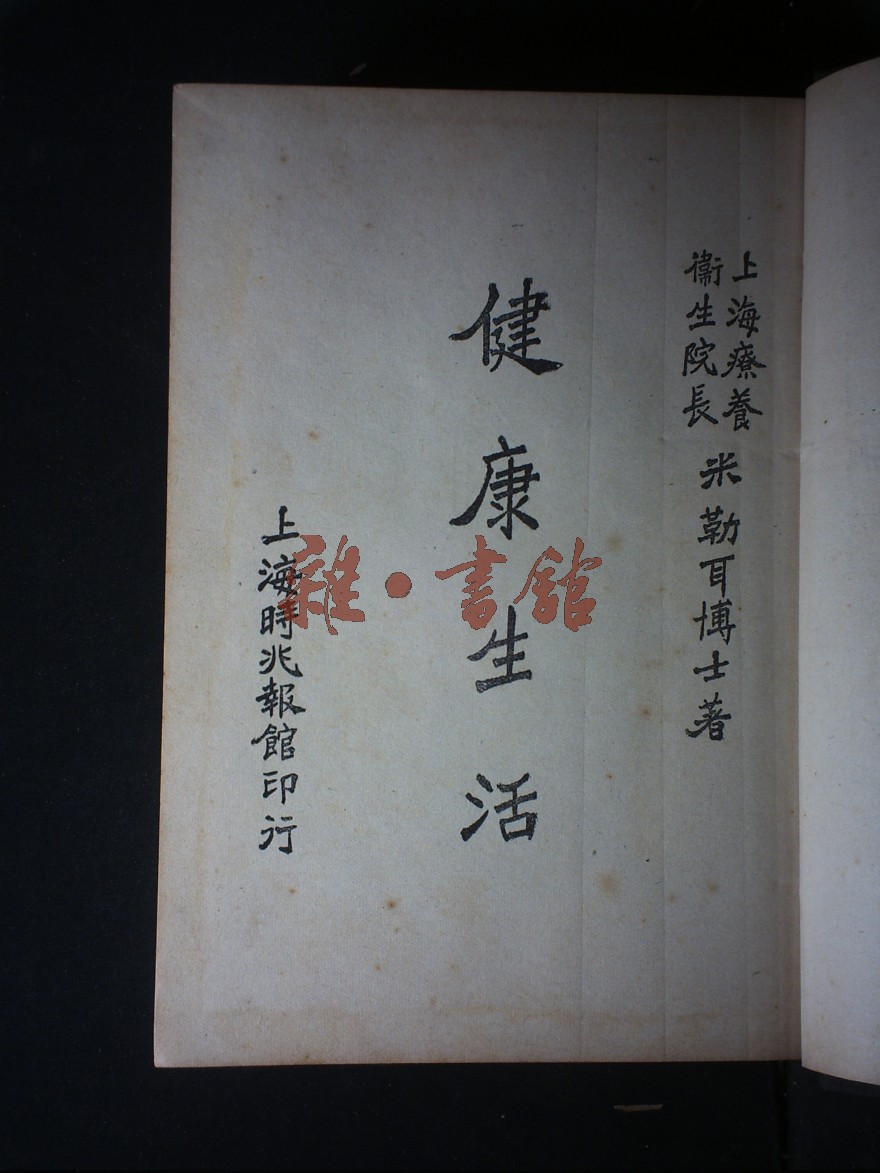 上海療養
衞生院長
米勒耳博士著
健康生活
上海時兆報館印行
雜·書館